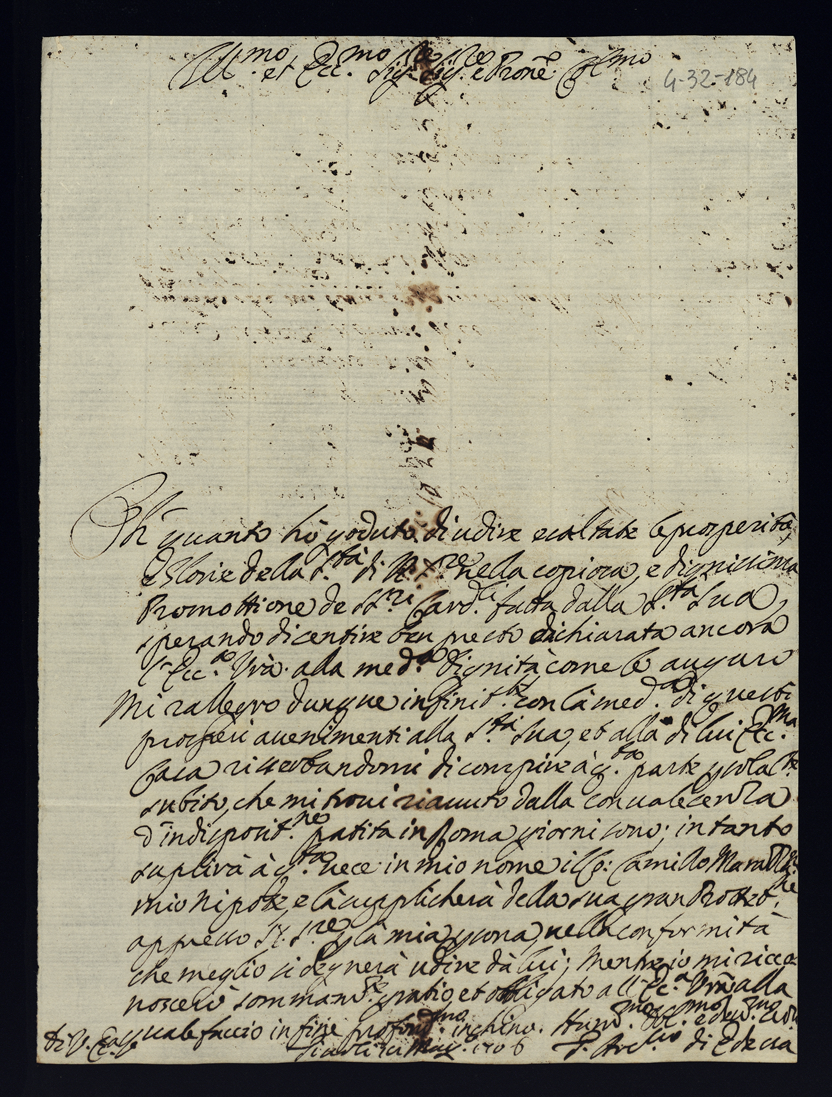 Ill.mo et Ecc.mo Sig.re Sig.re e Prone Col.mo
4-32-184
Oh quanto hò goduto di udire esaltate le prosperità,
e Glorie della S.tà di N. S.re nella copiosa, e dignissima
Promottione de SS.ri Card.li fatta dalla S.tà Sua,
sperando di sentire ben presto dichiarata ancora
l'Ecc.a Vrà alla med.a dignità come le auguro
Mi rallegro dunque infinit.te con la med.a di questi
prosperi avenimenti alla S.tà Sua, et alla di lui Ecc.ma
Casa riserbandomi di compire à q.ta parte
subito, che mi trovi riavuto dalla convalecenza
d'indisposit.ne patita in Roma giorni sono; intanto
suplirà à q.ta vece in mio nome il Camillo
mio Nipote, e la supplicherà della sua gran Protet.ne
appresso N. S.re p la mia persona, nella conformità
che meglio si degnerà udire dà lui; Mentre io mi ricco=
noscerò sommam.te gratio et obligato all'Ecc.a Vrà alla
quale faccio in fine profond.mo inchino.
Di V. Ecc.a 1706 di Edessa